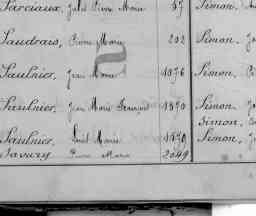 Sarciaux, Jules Pierre Marie 57 Simon,
Saudrais, Pierre Marie 202 Simon,
Saulnier, Jean Marie 1076 Simon,
Saulnier, Jean Marie François 1570 Simon,
Simon,
Saulnier, Marie 1570 Simon,
Savary Pierre Marie 2049